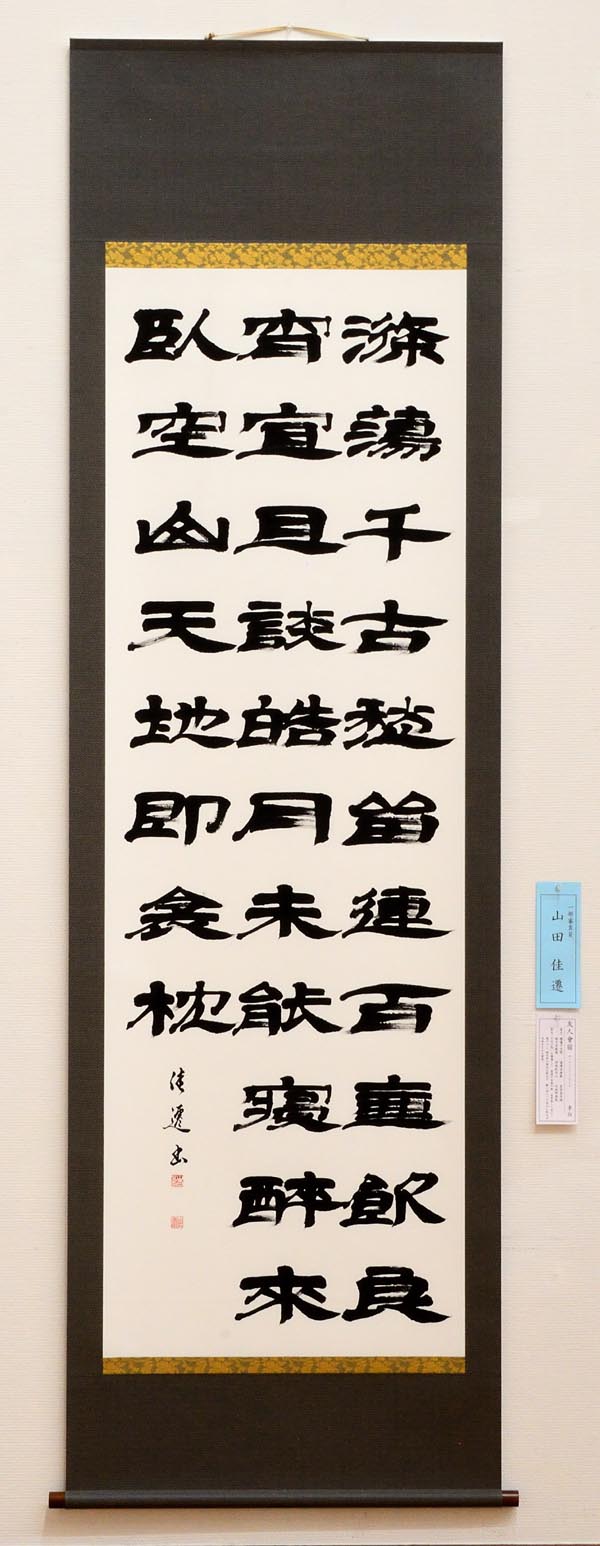 滌蕩千古愁留連百壺飲良
宵宜且談皓月未能寢醉來
臥空山天地即衾枕
佳遷書
一部審査員
山田 佳遷
友人會宿
李白